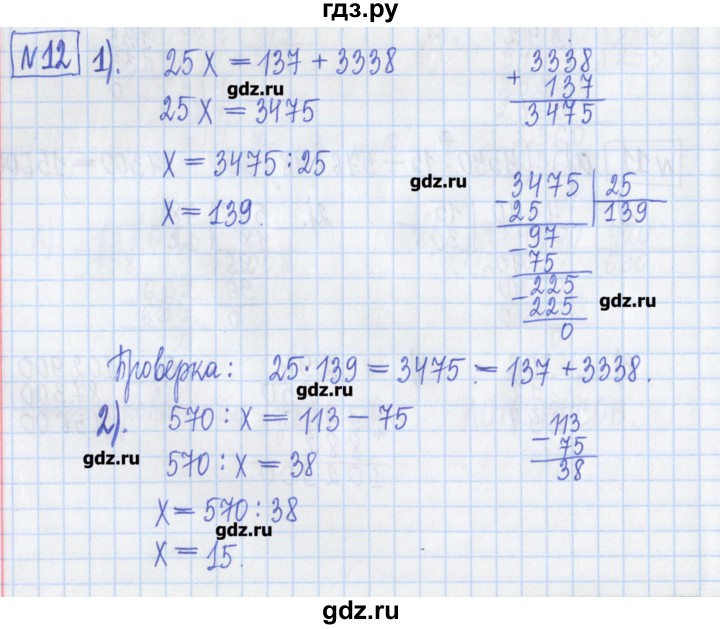 гдз.ру
№12 1). 25X = 137 + 3338
25X = 3475
X = 3475 : 25
X = 139.
+ 3338
137
3475
gdz.ru
gdz.ru
3475 | 25
- 25 139
- 97
75
- 225
225
0
gdz.ru
Проверка: 25·139 = 3475 = 137 + 3338.
gdz.ru
2). 570 : X = 113 - 75
570 : X = 38
X = 570 : 38
X = 15.
- 113
75
38
gdz.ru
gdz.ru
gdz.ru